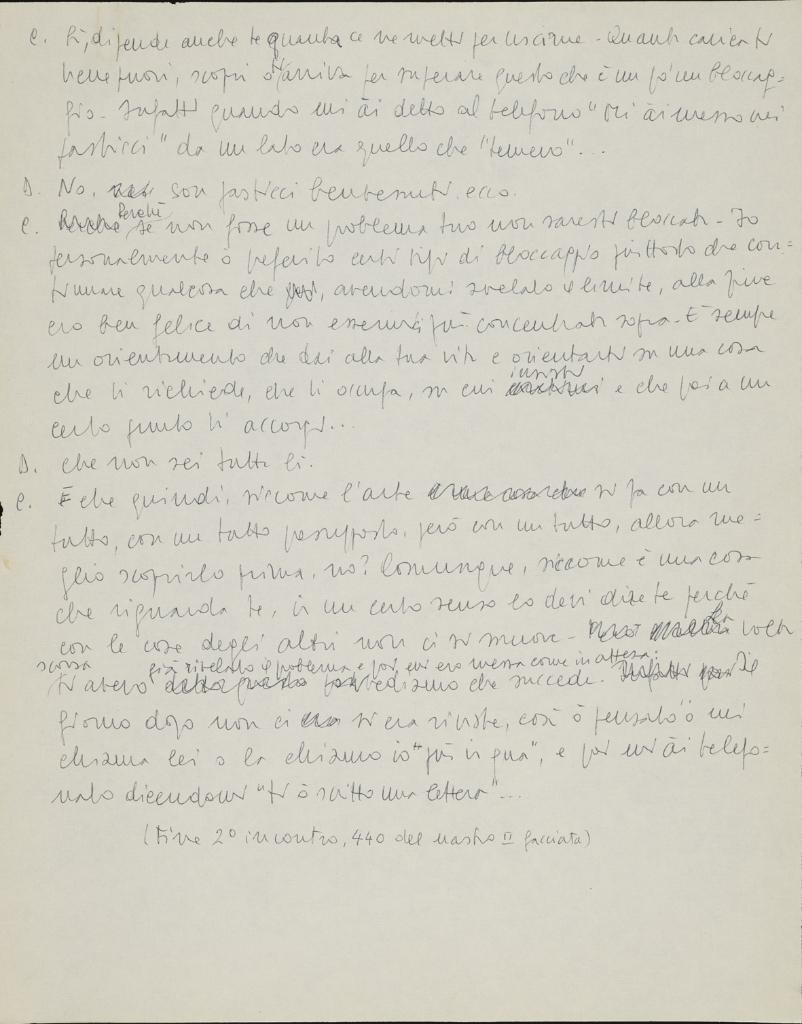 C. Sì, dipende anche te quanta ce ne metti per uscirne - Quanti carica ti
bene fuori, scopri o ti arriva per superare questo che è un po' un bloccag=
gio - Infatti quando mi ài detto al telefono "Mi ài messo nei
pasticci" da un lato era quello che "temevo"...
D. No, son pasticci benvenuti, ecco.
C. Perché se non fosse un problema tuo non saresti bloccata - Io
personalmente ò preferito certi tipi di bloccaggio piuttosto che con=
tinuare qualcosa che poi, avendomi svelato il limite, alla fine
ero ben felice di non essermici più concentrata sopra - È sempre
un orientamento che dai alla tua vita e orientarti su una cosa
che ti richiede, che ti occupa, su cui insisti e che poi a un
certo punto ti accorgi...
D. Che non sei tutta lì.
C. E che quindi, siccome l'arte si fa con un
tutto, con un tutto presupposto, però con un tutto, allora me=
glio scoprirlo prima, no? Comunque, siccome è una cosa
che riguarda te, in un certo senso lo devi dire te perché
con le cose degli altri non ci si muove - La volta
scorsa ti avevo già rivelato il problema e poi mi ero messa come in attesa:
vediamo che succede. Il
giorno dopo non ci si era riviste, così ò pensato "o mi
chiama lei o la chiamo io più in qua", e poi mi ài telefo=
nato dicendomi "ti ò scritto una lettera"...
(Fine 2º incontro, 440 del nastro II facciata)